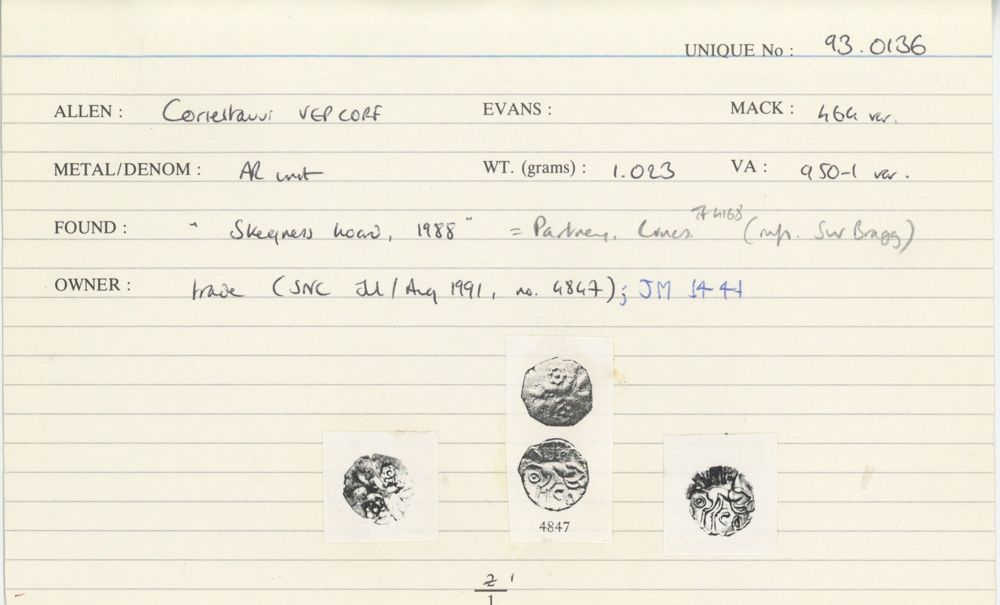 UNIQUE No : 93.0136
ALLEN : Corieltauvi VEP CORF EVANS : MACK : 464 var.
METAL/DENOM : AR unit WT. (grams) : 1.023 VA : 950-1 var.
FOUND : "Skegness hoard, 1988" = Partney, Lincs. (inf. Sur Bragg)
OWNER : trade (SNC Jul/Aug 1991, no. 4847); JM
4847
2
1